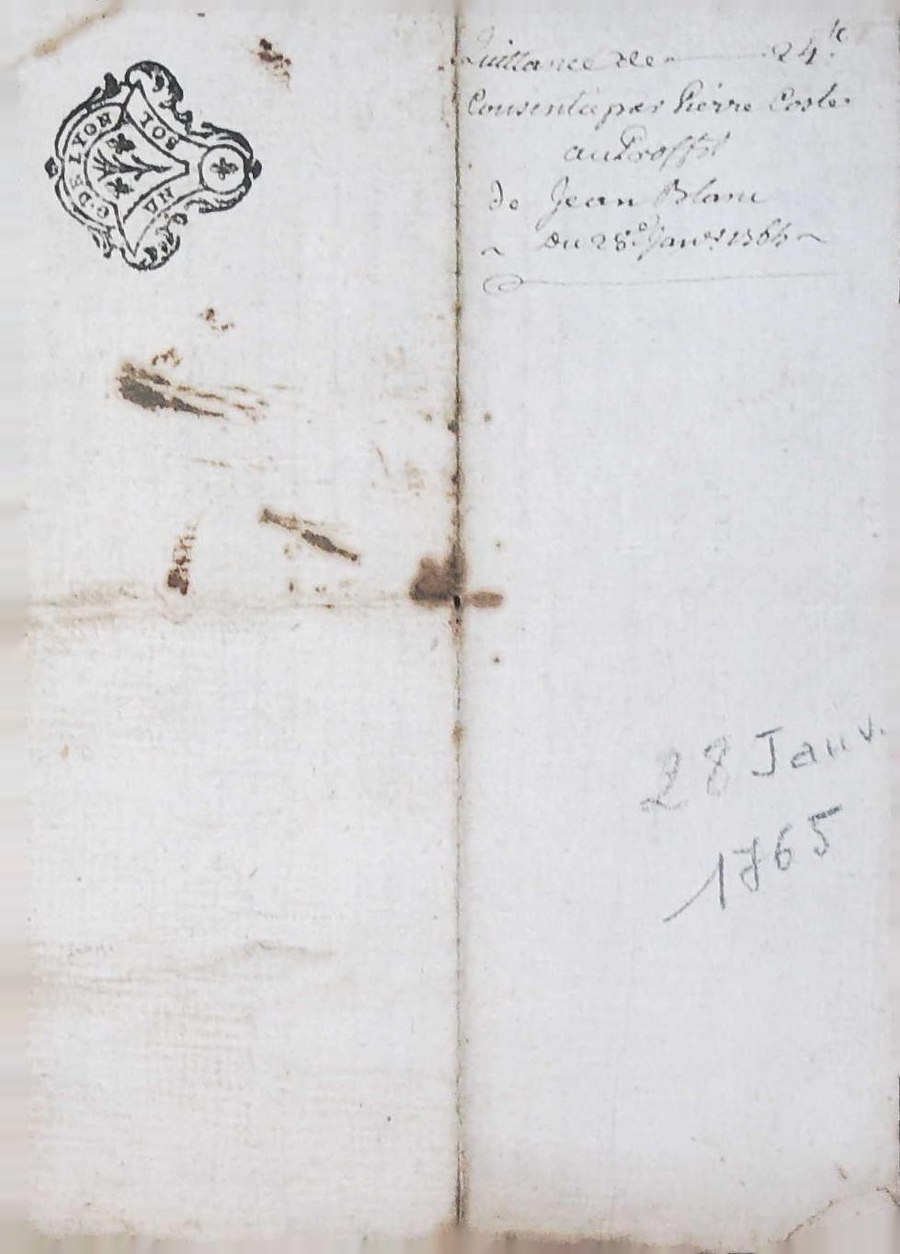 G. DE LYON
UN SOL
Quittance de 24ᵗᵗ
Consentie par Pierre Coste
au Proffit
de Jean Blanc
du 28ᵉ Janᵛ 1765
28 Janv.
1765